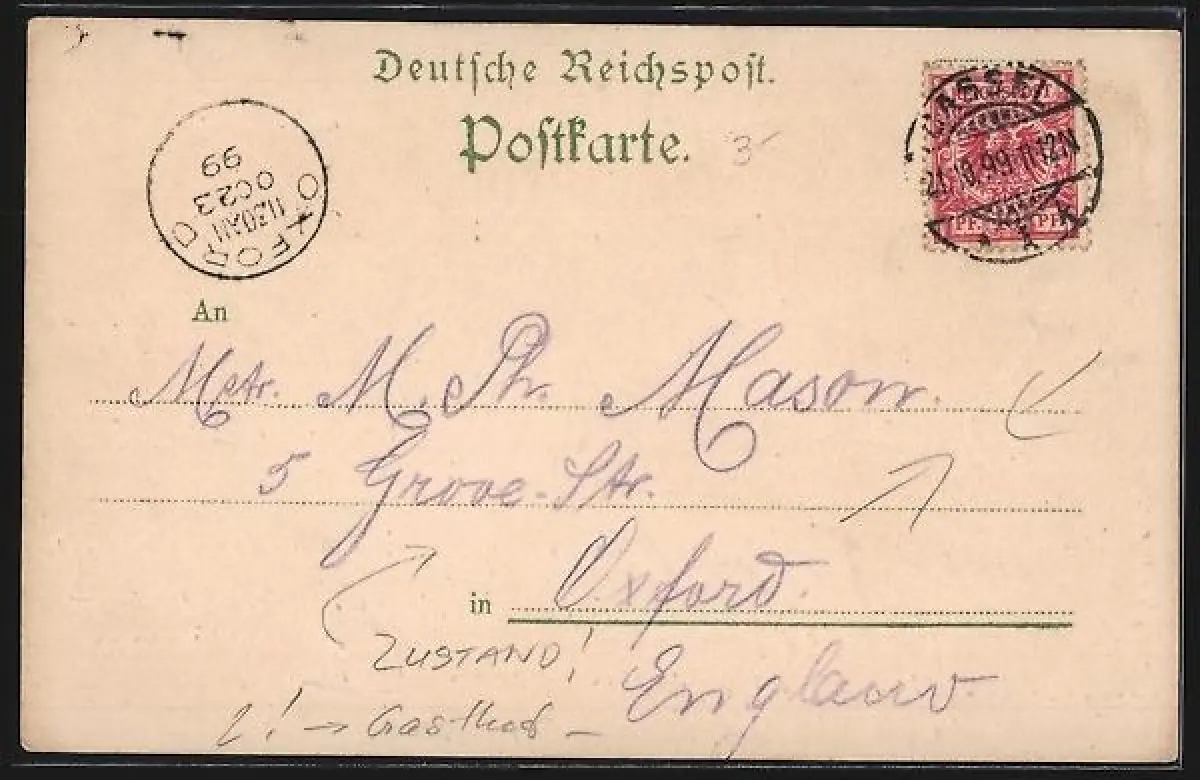 Deutsche Reichspost.
Postkarte.
3-
CASSEL
21.10.99.11-12N
* A K
PF. PF.
OXFORD
1120AM
OC23
99
An
Mstr. M. Ph. Mason.
5 Grove-Str.
in Oxford.
England
ZUSTAND!
2! → Gasthof –